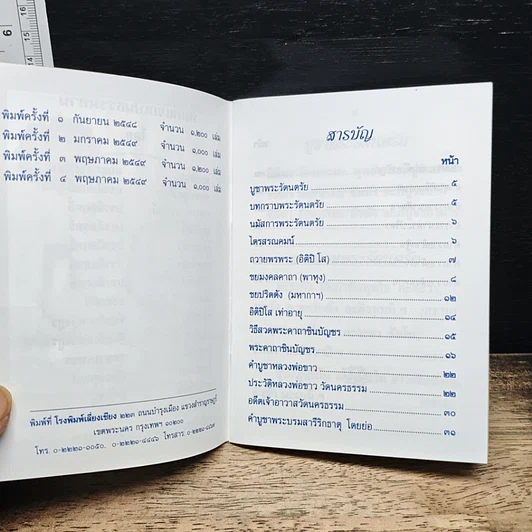 พิมพ์ครั้งที่ ๑ กันยายน ๒๕๔๘ จำนวน ๑,๒๐๐ เล่ม
พิมพ์ครั้งที่ ๒ มกราคม ๒๕๔๙ จำนวน ๑,๐๐๐ เล่ม
พิมพ์ครั้งที่ ๓ พฤษภาคม ๒๕๔๙ จำนวน ๑,๒๐๐ เล่ม
พิมพ์ครั้งที่ ๔ พฤษภาคม ๒๕๔๙ จำนวน ๑,๐๐๐ เล่ม
พิมพ์ที่ โรงพิมพ์เลี่ยงเซียง ๒๒๓ ถนนบำรุงเมือง แขวงสำราญราษฎร์
เขตพระนคร กรุงเทพฯ ๑๐๒๐๐
โทร. ๐-๒๒๒๑-๑๐๕๐, ๐-๒๒๒๑-๔๔๔๖ โทรสาร
สารบัญ
หน้า
บูชาพระรัตนตรัย ๕
บทกราบพระรัตนตรัย ๕
นมัสการพระรัตนตรัย ๖
ไตรสรณคมน์ ๖
ถวายพรพระ (อิติปิ โส) ๗
ชยมงคลคาถา (พาหุง) ๘
ชยปริตตัง (มหากาฯ) ๑๒
อิติปิโส เท่าอายุ ๑๔
วิธีสวดพระคาถาชินบัญชร ๑๕
พระคาถาชินบัญชร ๑๖
คำบูชาหลวงพ่อขาว ๒๒
ประวัติหลวงพ่อขาว วัดนครธรรม ๒๒
อดีตเจ้าอาวาสวัดนครธรรม ๓๐
คำบูชาพระบรมสารีริกธาตุ โดยย่อ ๓๑
6
14
15
16